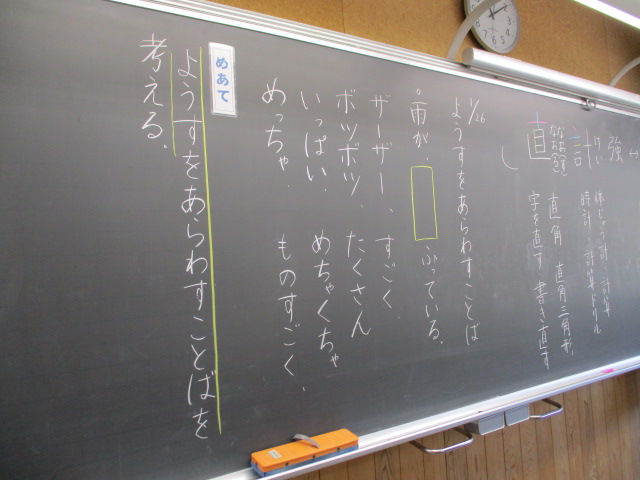 強
計
けい
体じゅう計 計算
時計 計算ドリル
直
なお(す)
なお(る)
直角 直角三角形
字を直す 書き直す
し
1/26
ようすをあらわすことば
。雨が、 ふっている。
ザーザー、 すごく、
ボツボツ、 たくさん
いっぱい、 めちゃくちゃ
めっちゃ、 ものすごく、
めあて
ようすをあらわすことばを
考える。